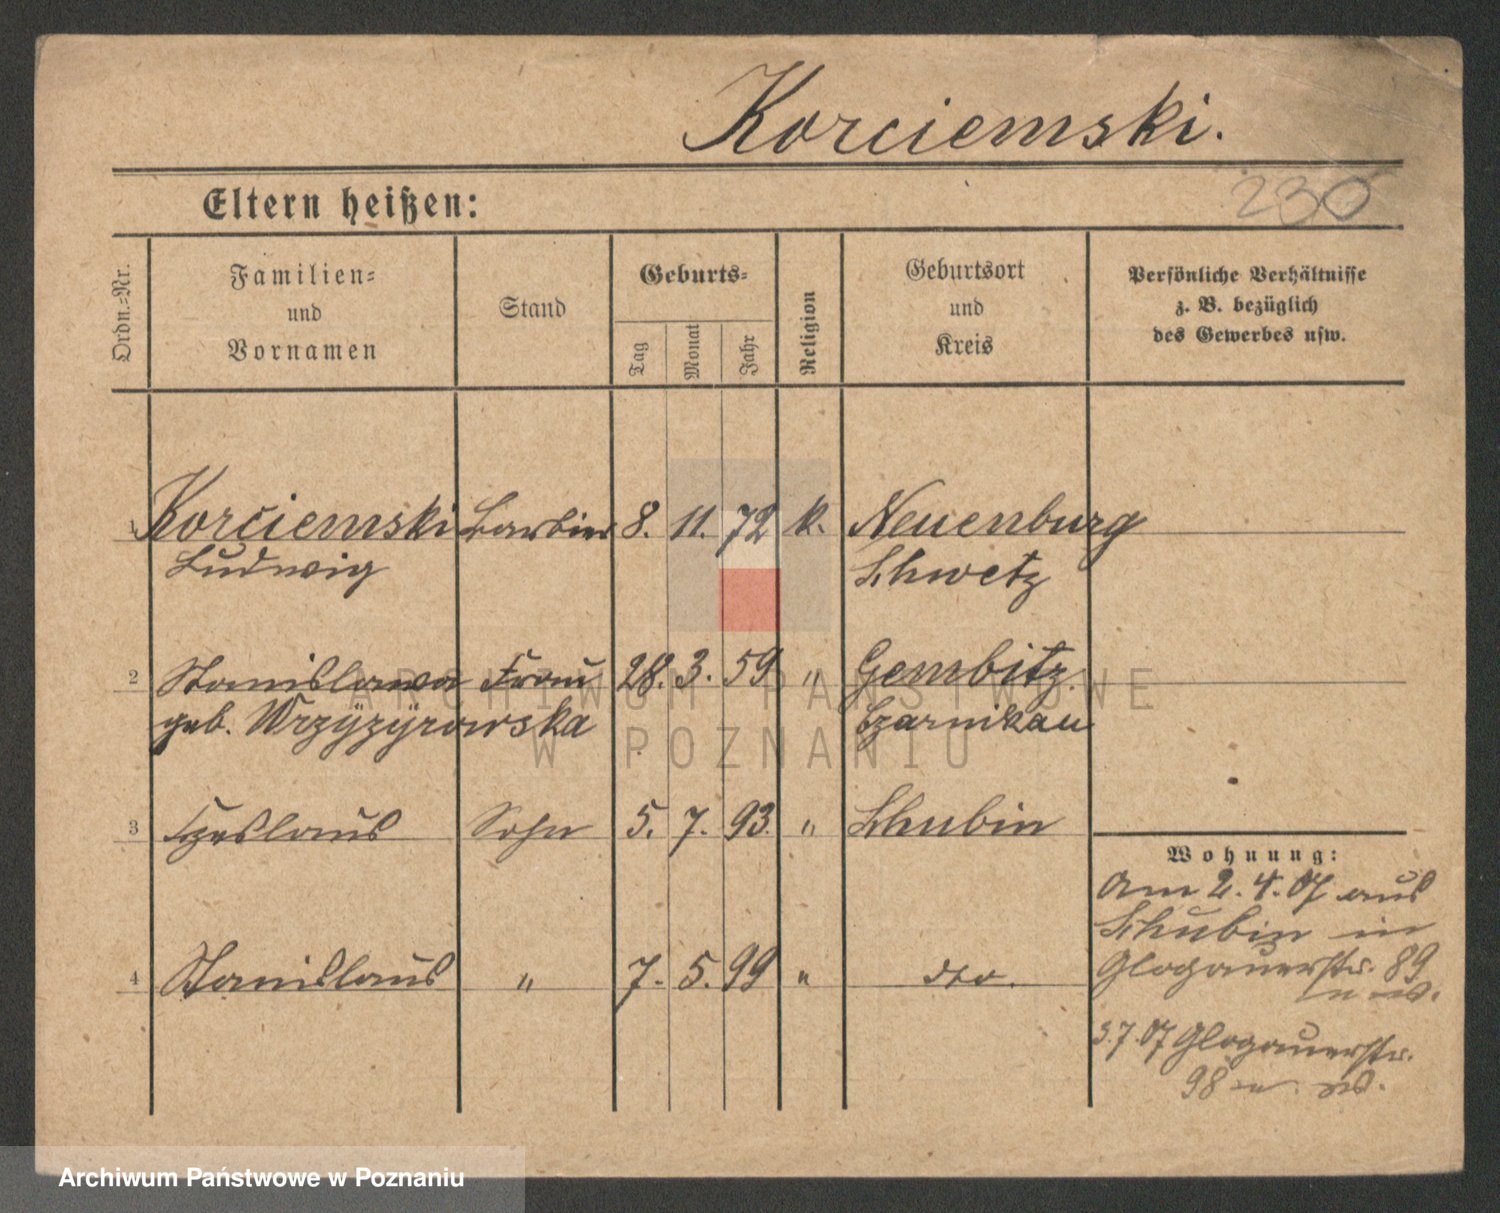 Korciemski.
230
Eltern heißen:
Ordn.-Nr.
Familien-
und
Vornamen
Stand
Geburts-
Tag
Monat
Jahr
Religion
Geburtsort
und
Kreis
Persönliche Verhältnisse
z. B. bezüglich
des Gewerbes usw.
1 Korciemski Barbier 8. 11. 72 k. Neuenburg
Ludwig Schwetz
2 Stanislawa Frau 28. 3. 59 " Gembitz
geb. Wrzÿzÿrowska Czarnikau
3 Czeslaus Sohn 5. 7. 93. " Schubin
4 Stanislaus " 7. 5. 99 " dto.
Wohnung:
Am 2.4.07 aus
Schubin in
Glogauerstr. 89
3.7.07 Glogauerstr.
98
ARCHIWUM PAŃSTWOWE
W POZNANIU
Archiwum Państwowe w Poznaniu